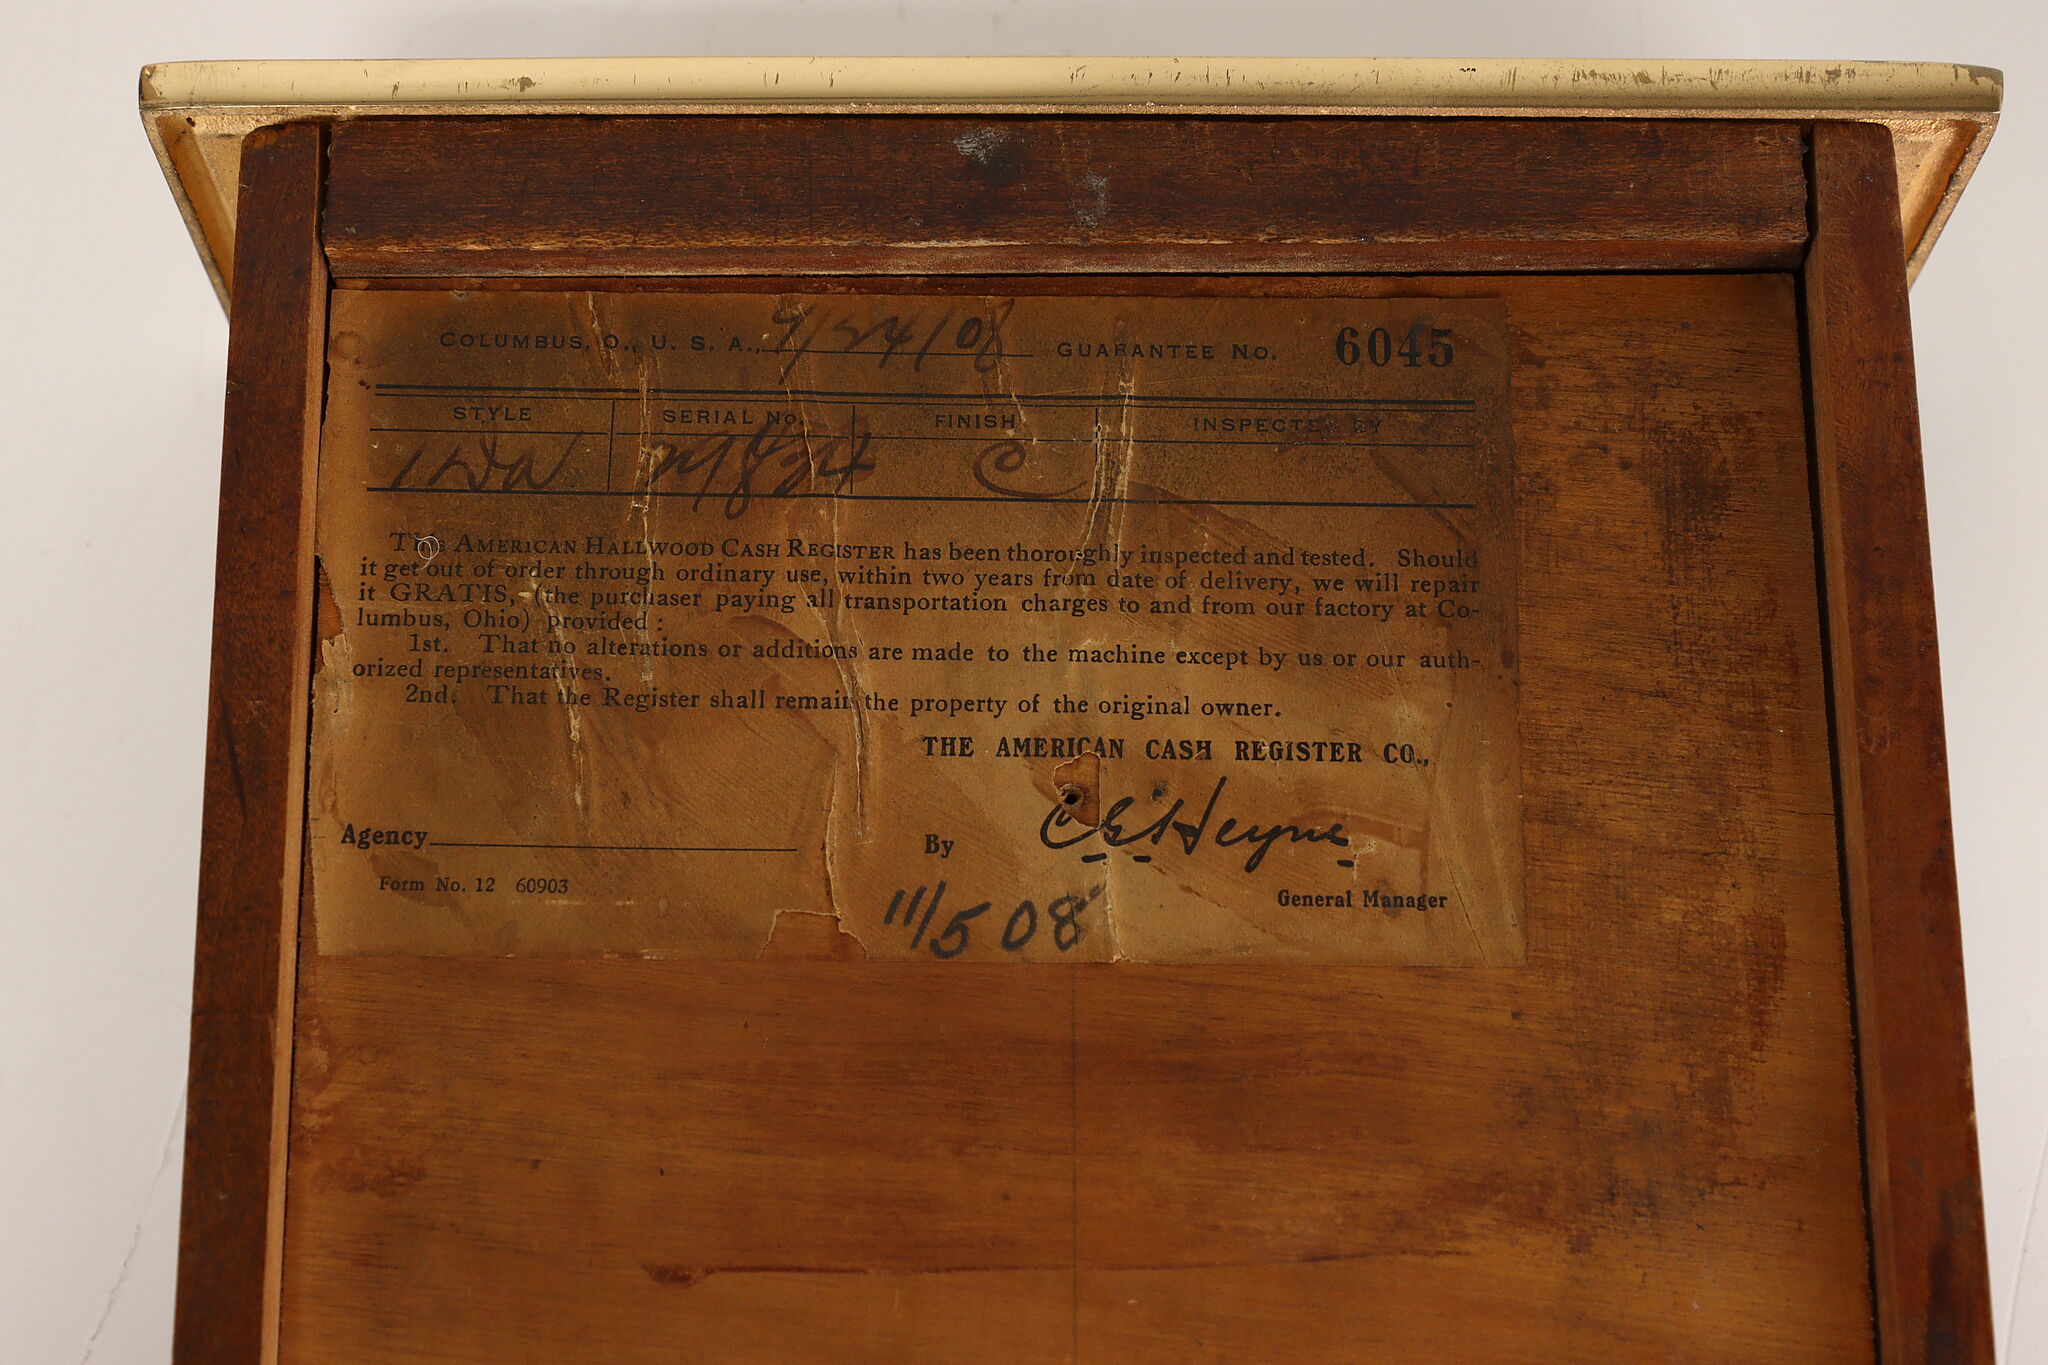 COLUMBUS, O., U. S. A., 9/24/08 GUARANTEE NO. 6045
STYLE SERIAL NO. FINISH INSPECTED BY
C
This AMERICAN HALLWOOD CASH REGISTER has been thoroughly inspected and tested. Should
it get out of order through ordinary use, within two years from date of delivery, we will repair
it GRATIS, (the purchaser paying all transportation charges to and from our factory at Co-
lumbus, Ohio) provided:
1st. That no alterations or additions are made to the machine except by us or our auth-
orized representatives.
2nd. That the Register shall remain the property of the original owner.
THE AMERICAN CASH REGISTER CO.,
Agency By C E Heyne
Form No. 12 60903 General Manager
11/5 08